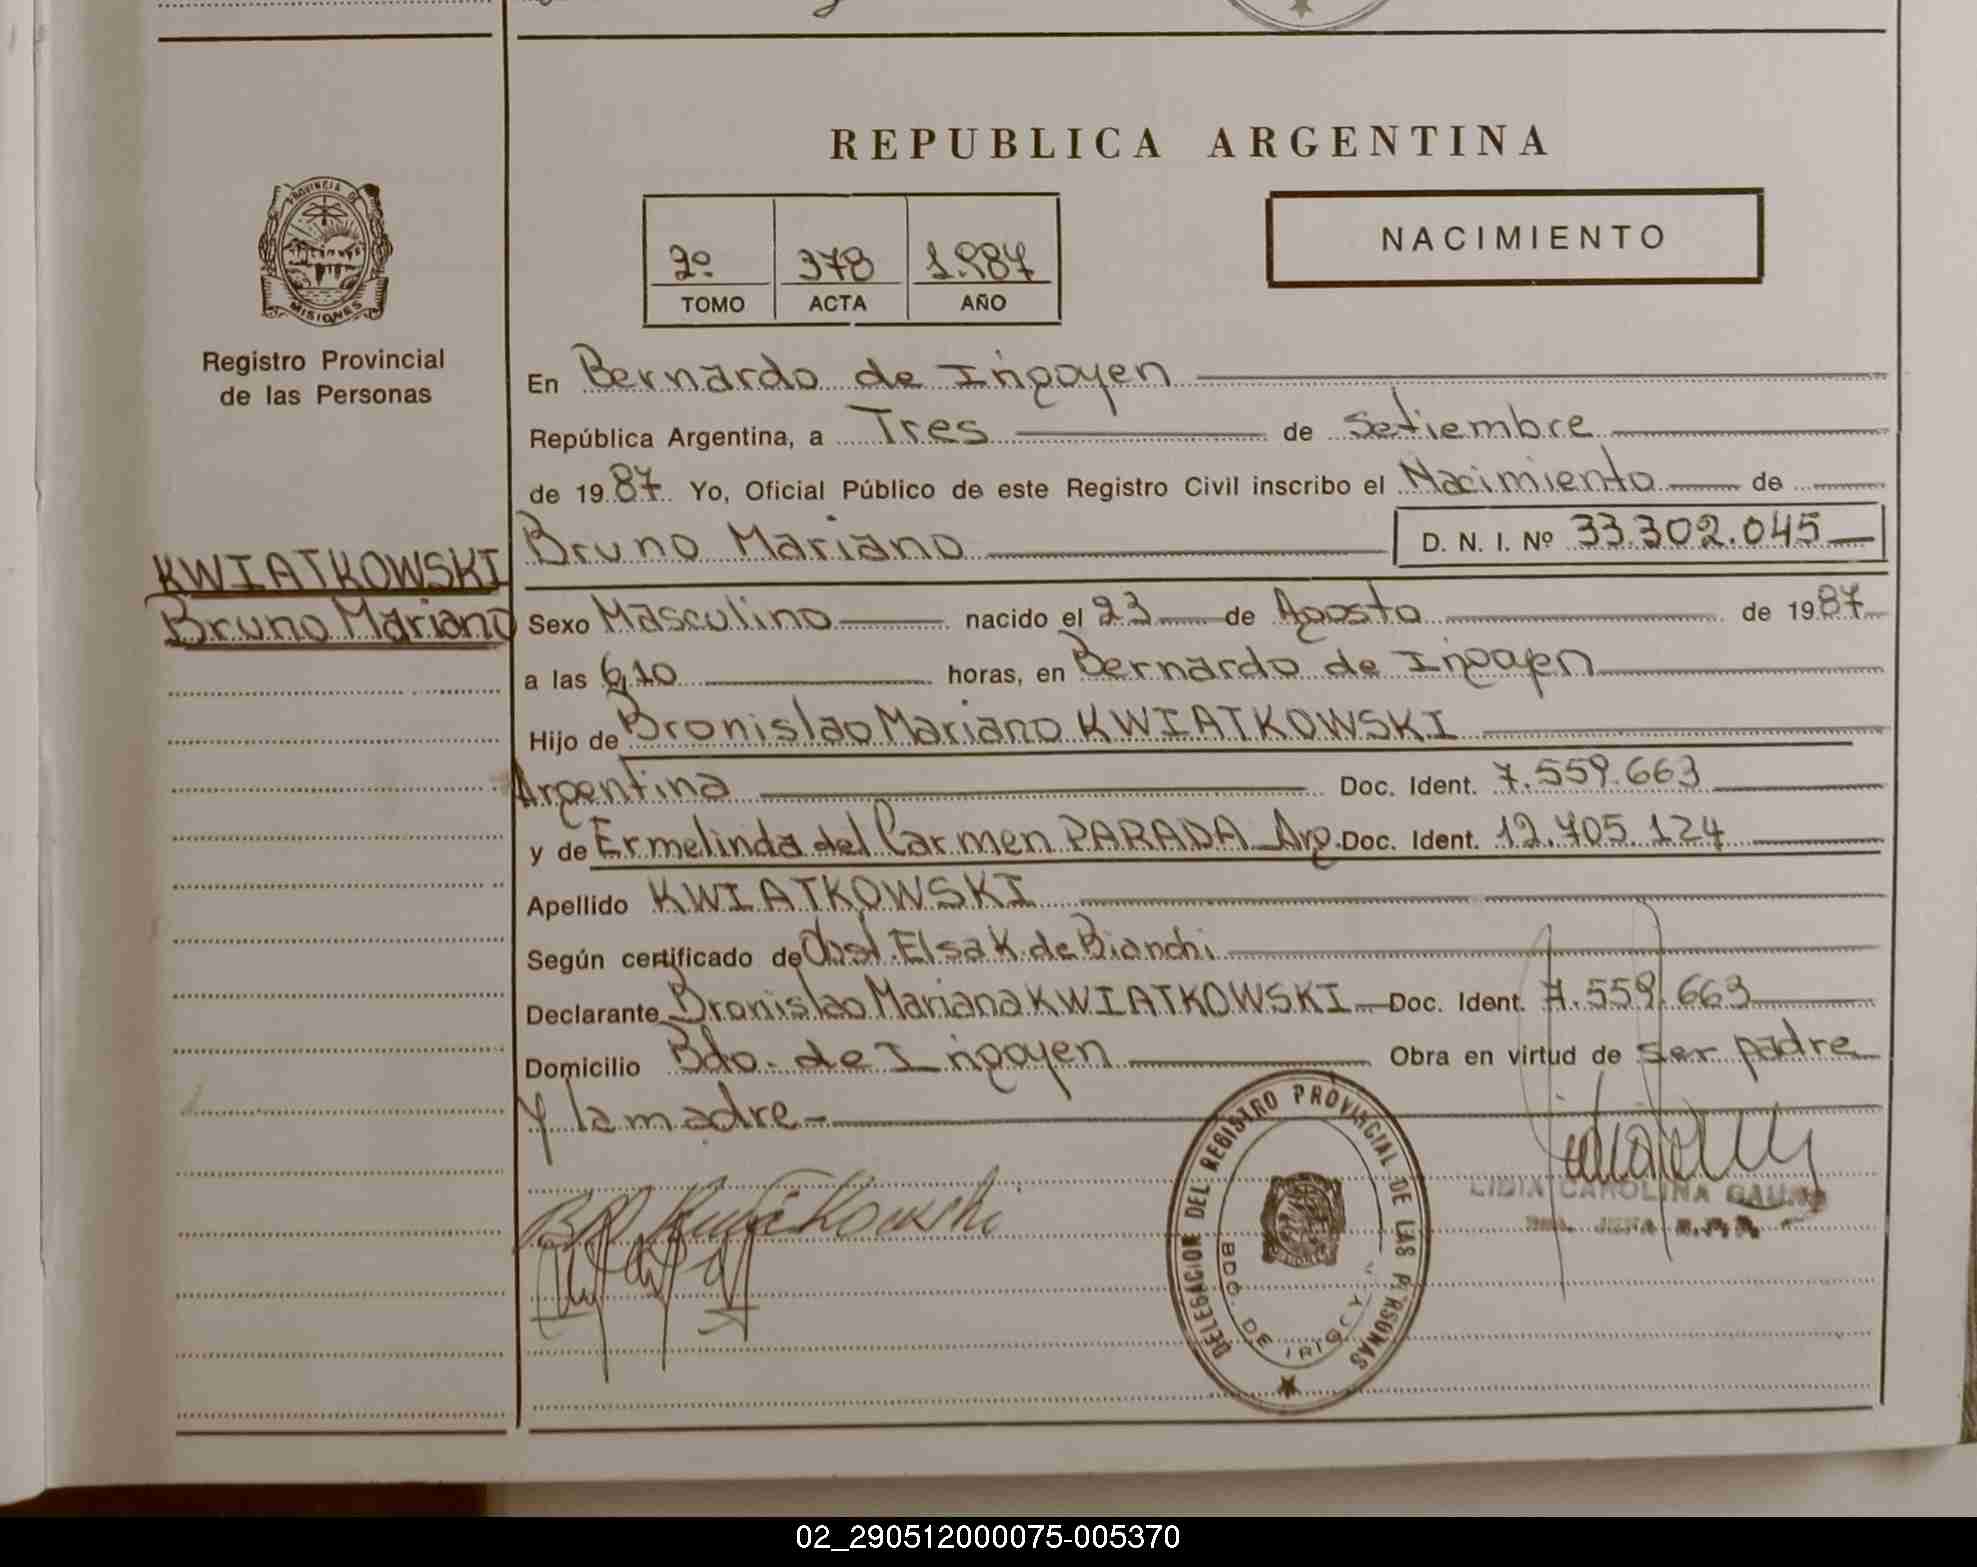 REPUBLICA ARGENTINA
PROVINCIA DE
MISIONES
Registro Provincial
de las Personas
2º 378 1.987
TOMO ACTA AÑO
NACIMIENTO
En Bernardo de Irigoyen
República Argentina, a Tres de Setiembre
de 1987 Yo, Oficial Público de este Registro Civil inscribo el Nacimiento de
Bruno Mariano D. N. I. Nº 33.302.045
KWIATKOWSKI
Bruno Mariano
Sexo Masculino nacido el 23 de Agosto de 1987
a las 6,10 horas, en Bernardo de Irigoyen
Hijo de Bronislao Mariano KWIATKOWSKI
Argentina Doc. Ident. 7.559.663
y de Ermelinda del Carmen PARADA Arg. Doc. Ident. 12.705.124
Apellido KWIATKOWSKI
Según certificado de Obst. Elsa K. de Bianchi
Declarante Bronislao Mariano KWIATKOWSKI Doc. Ident. 7.559.663
Domicilio Bdo. de Irigoyen Obra en virtud de ser padre
y la madre
DELEGACION DEL REGISTRO PROVINCIAL DE LAS PERSONAS
BDO. DE IRIGOY
LIDIA CAROLINA
02_290512000075-005370